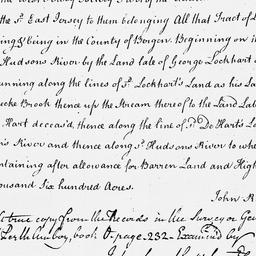 the sd. East Jersey to them belonging All that Tract of L
ing & being in the County of Bergen. Beginning on th
Hudsons River by the Land late of George Lockhart
unning along the lines of sd. Lockhart's Land as his La
cke Brook thence up the Stream thereof to the Land Late
Hart deceas'd, thence along the line of sd. De Hart's L
n's River and thence along sd. Hudsons River to whe
ntaining after allowance for Barren Land and High
ousand Six hundred Acres.
John R
true copy from the Records in the Surveyor Gen
Perth Amboy, book O. page. 232. Examined by